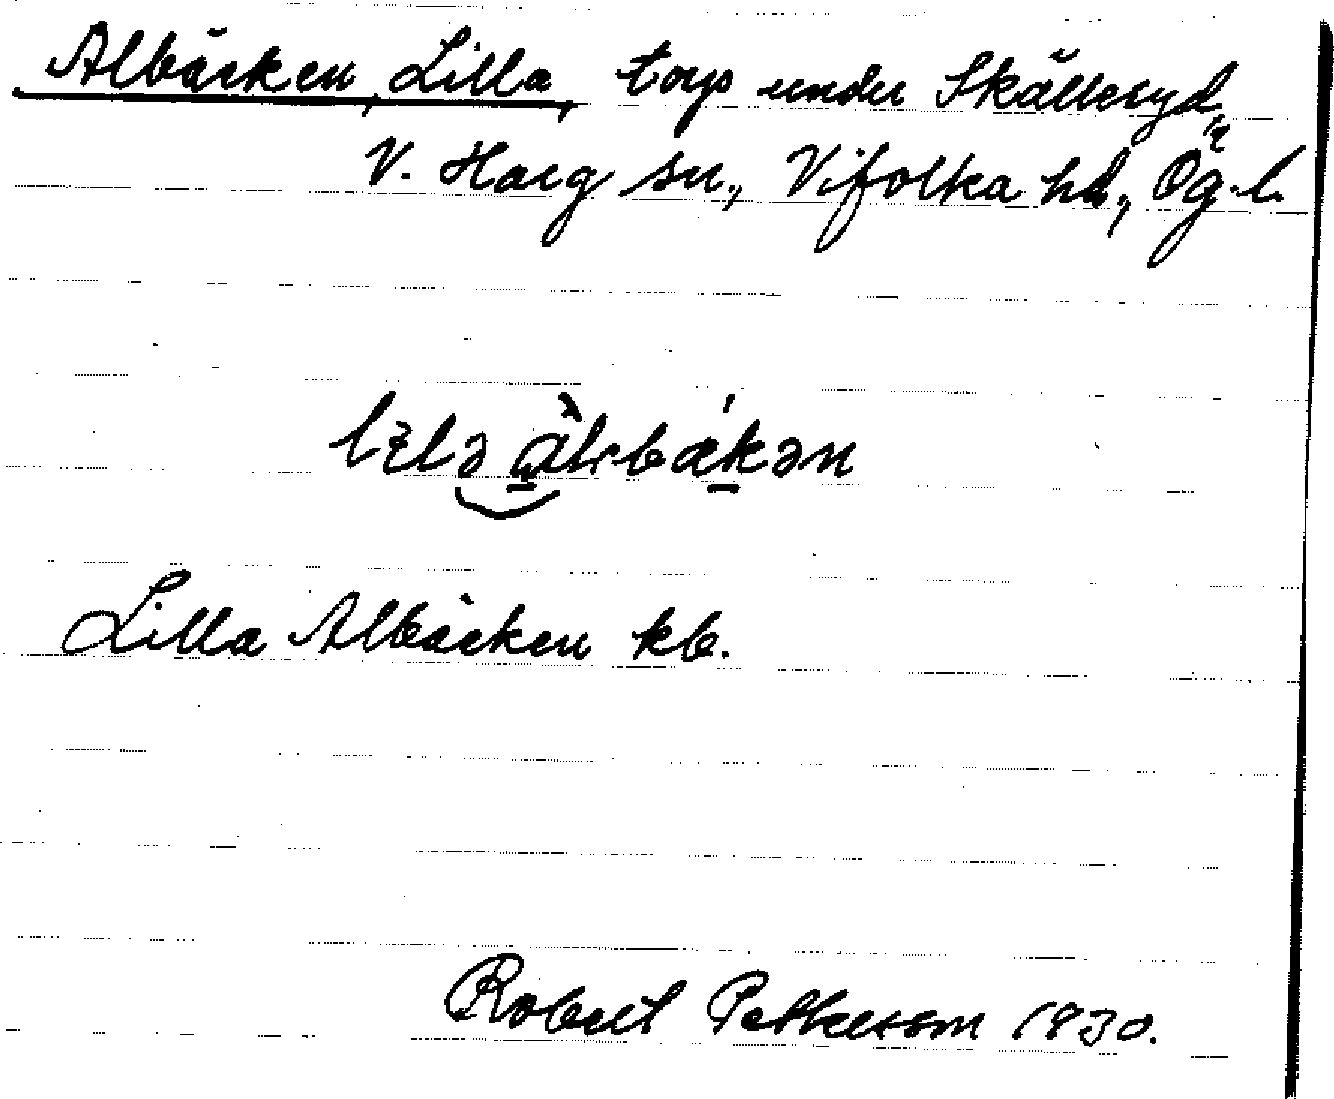 Albäcken, Lilla, torp under Skälleryd,
V. Harg sn., Vifolka hd., Ög. l.
Lilla Albäcken kb.
Robert Pettersson 1930.